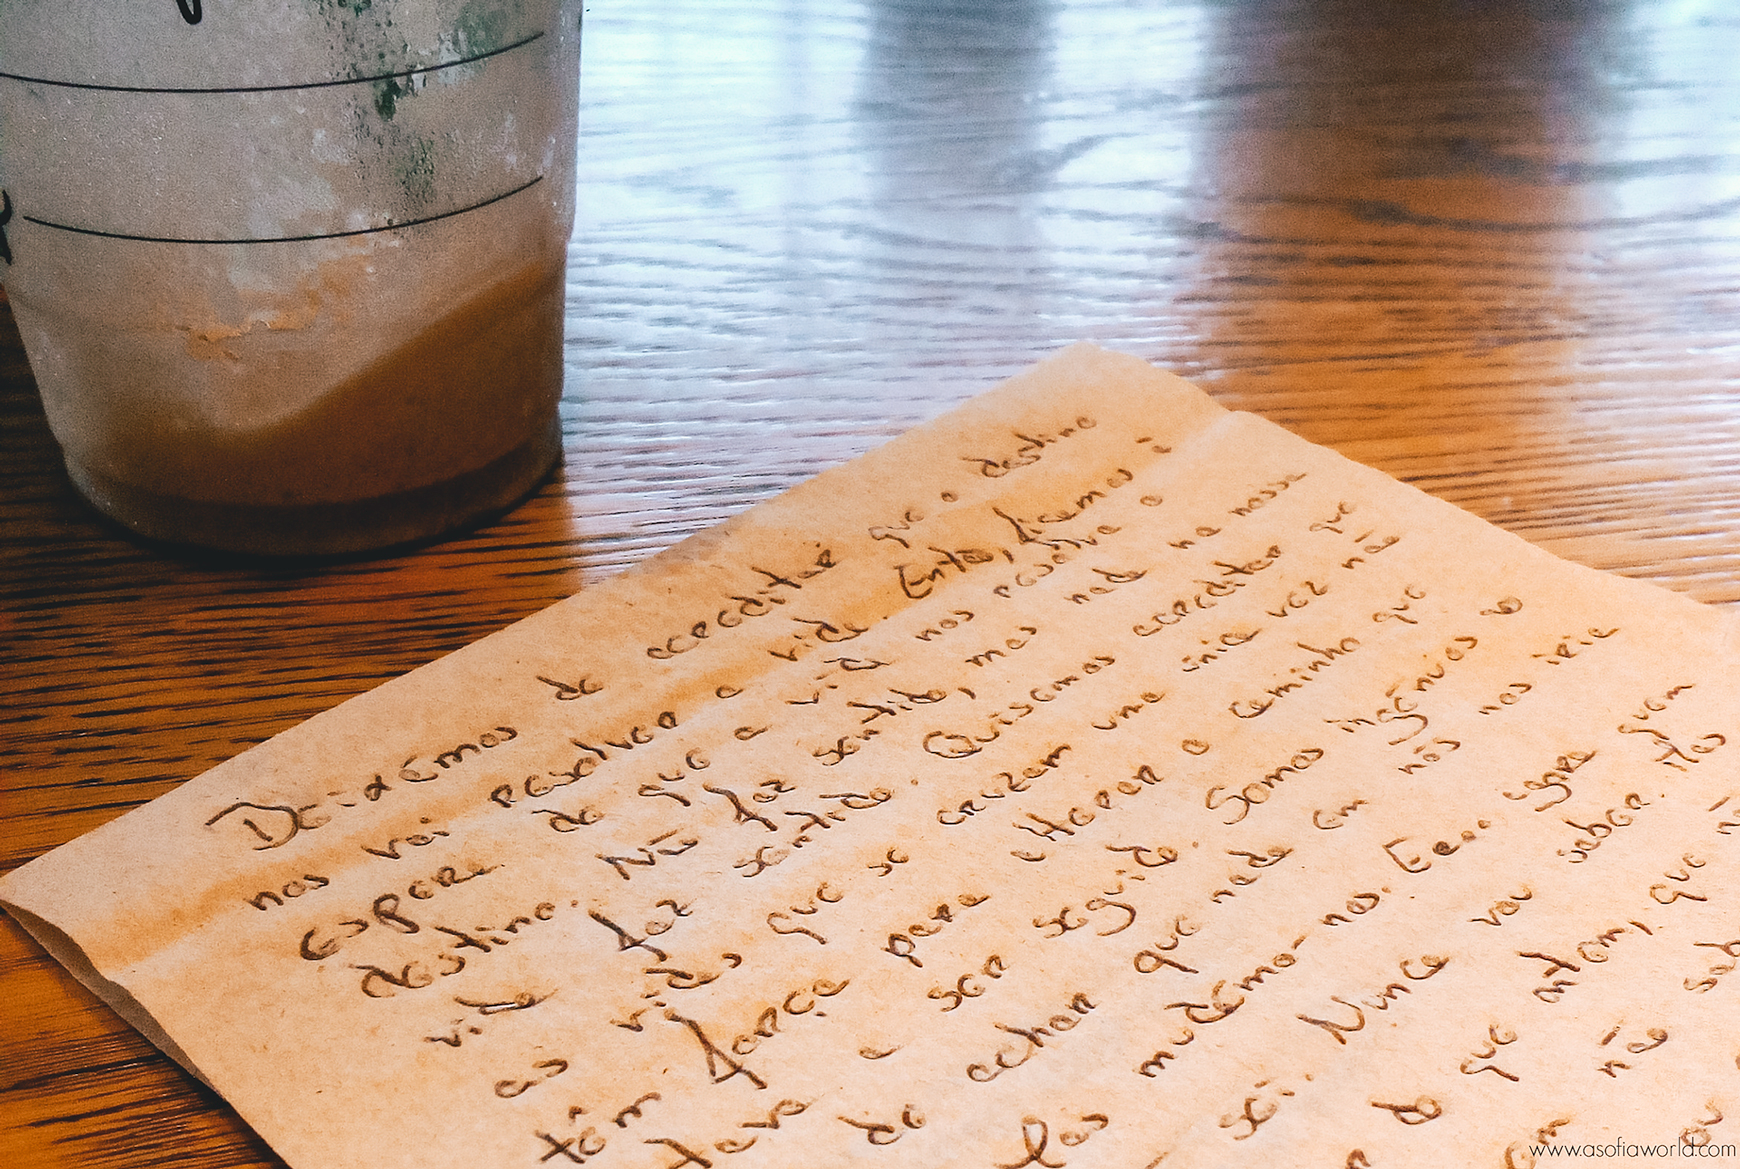 Deixámos de acreditar que o destino
nos vai resolver a vida. Então, ficamos à
espera de que a vida nos resolva o
destino. Não faz sentido, mas nada na nossa
vida faz sentido. Quisemos acreditar que
as vidas que se cruzam uma única vez não
têm força para alterar o caminho que
tava a ser seguido. Somos ingénuos ao
de achar que nada em nós nos iria
las mudámo-nos. E... agora quem
sei. Nunca vou saber. Mas
do que ontem, que
em não sab
ou
www.asofiaworld.com